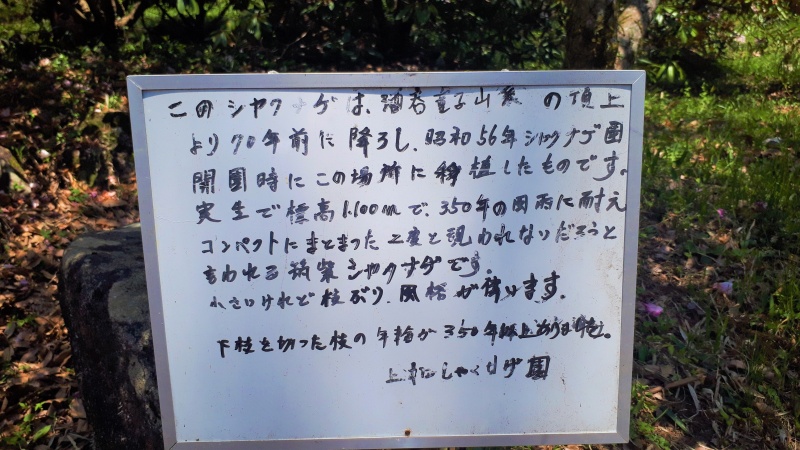 このシャクナゲは、酒呑童子山 の頂上
より70年前に降ろし、昭和56年シャクナゲ園
開園時にこの場所に移植したものです。
実生で標高1.100mで、350年の風雨に耐え
コンパクトにまとまった二度と現われないだろうと
言われる筑紫シャクナゲです。
小さいけれど枝ぶり、風格が漂います。
下枝を切った枝の年輪が350年以上
上 しゃくなげ園